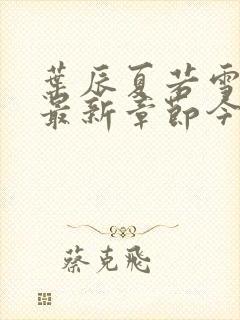 葉辰夏若雪
最新章節今
蔡克飛